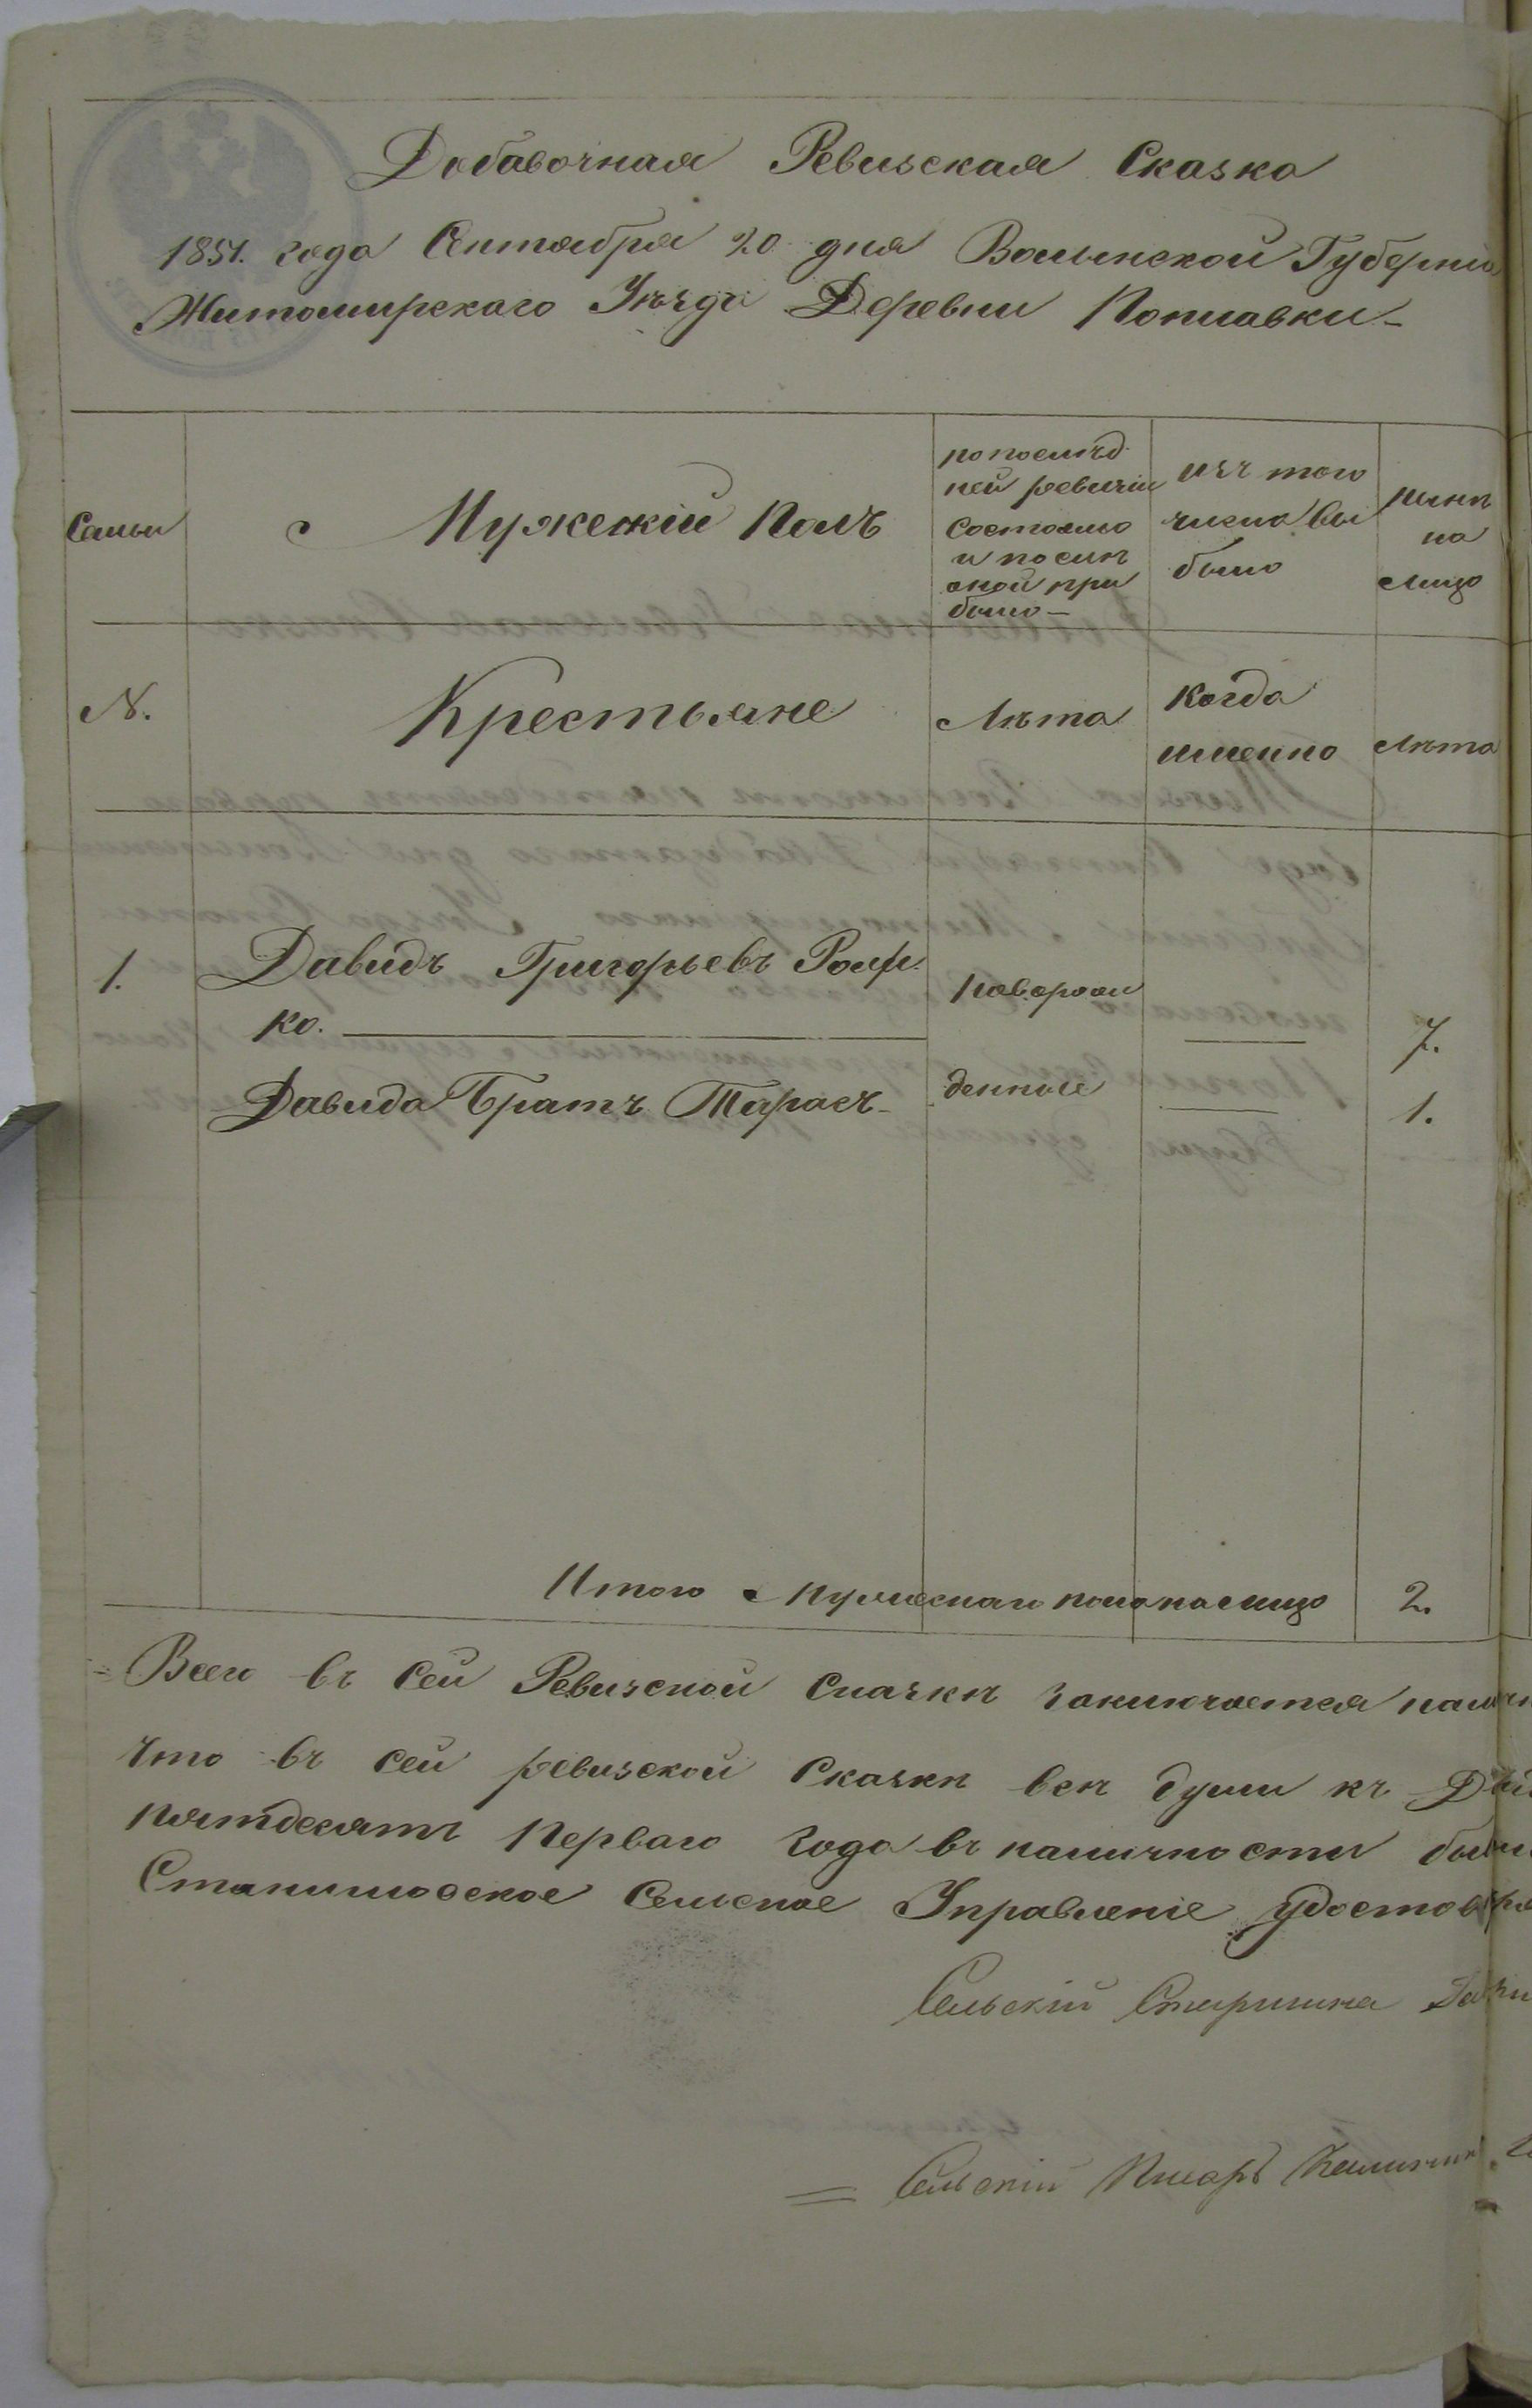 Добавочная Ревизская Сказка
1851. года Сентября 20 дня Волынской Губерніи
Житомирскаго Уѣзда Деревни Поплавки
Семьи
Мужескій Полъ
по послѣд
ней ревизіи
состояло
и послѣ
оной при
было
изъ того
числа вы
было
нынѣ
на
лицо
N.
Крестьяне
Лѣта
когда
именно
Лѣта
1.
Давидъ Григорьевъ
ко.
Давида Братъ Тарасъ
новорож
денные
7.
1.
Итого Мужескаго пола на лицо 2.
Всего въ сей Ревизской Сказкѣ заключается
Что въ сей ревизской Сказкѣ всѣ души къ
пятдесятъ перваго года въ наличности
Сельское Управленіе
Сельскій Старшина
Сельскій Писарь